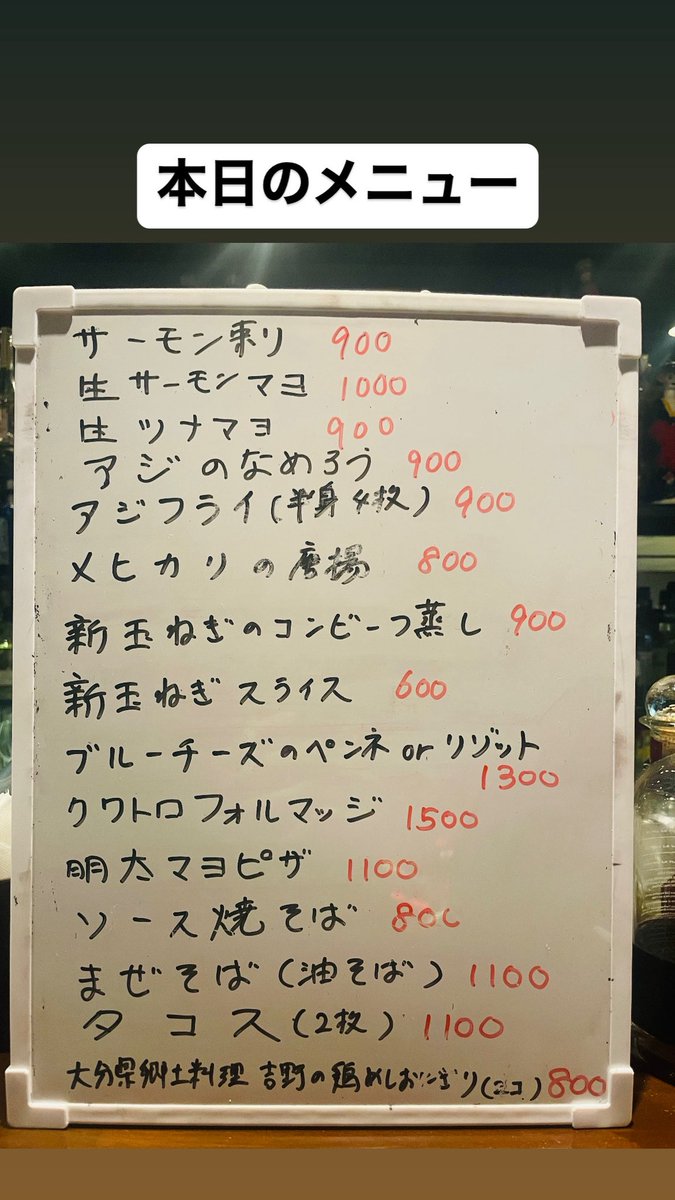 本日のメニュー
サーモン刺り 900
生サーモンマヨ 1000
生ツナマヨ 900
アジのなめろう 900
アジフライ(半身4枚) 900
メヒカリの唐揚 800
新玉ねぎのコンビーフ蒸し 900
新玉ねぎスライス 600
ブルーチーズのペンネorリゾット
1300
クワトロフォルマッジ 1500
明太マヨピザ 1100
ソース焼そば 800
まぜそば(油そば) 1100
タコス(2枚) 1100
大分県郷土料理 吉野の鶏めしおにぎり(2コ) 800